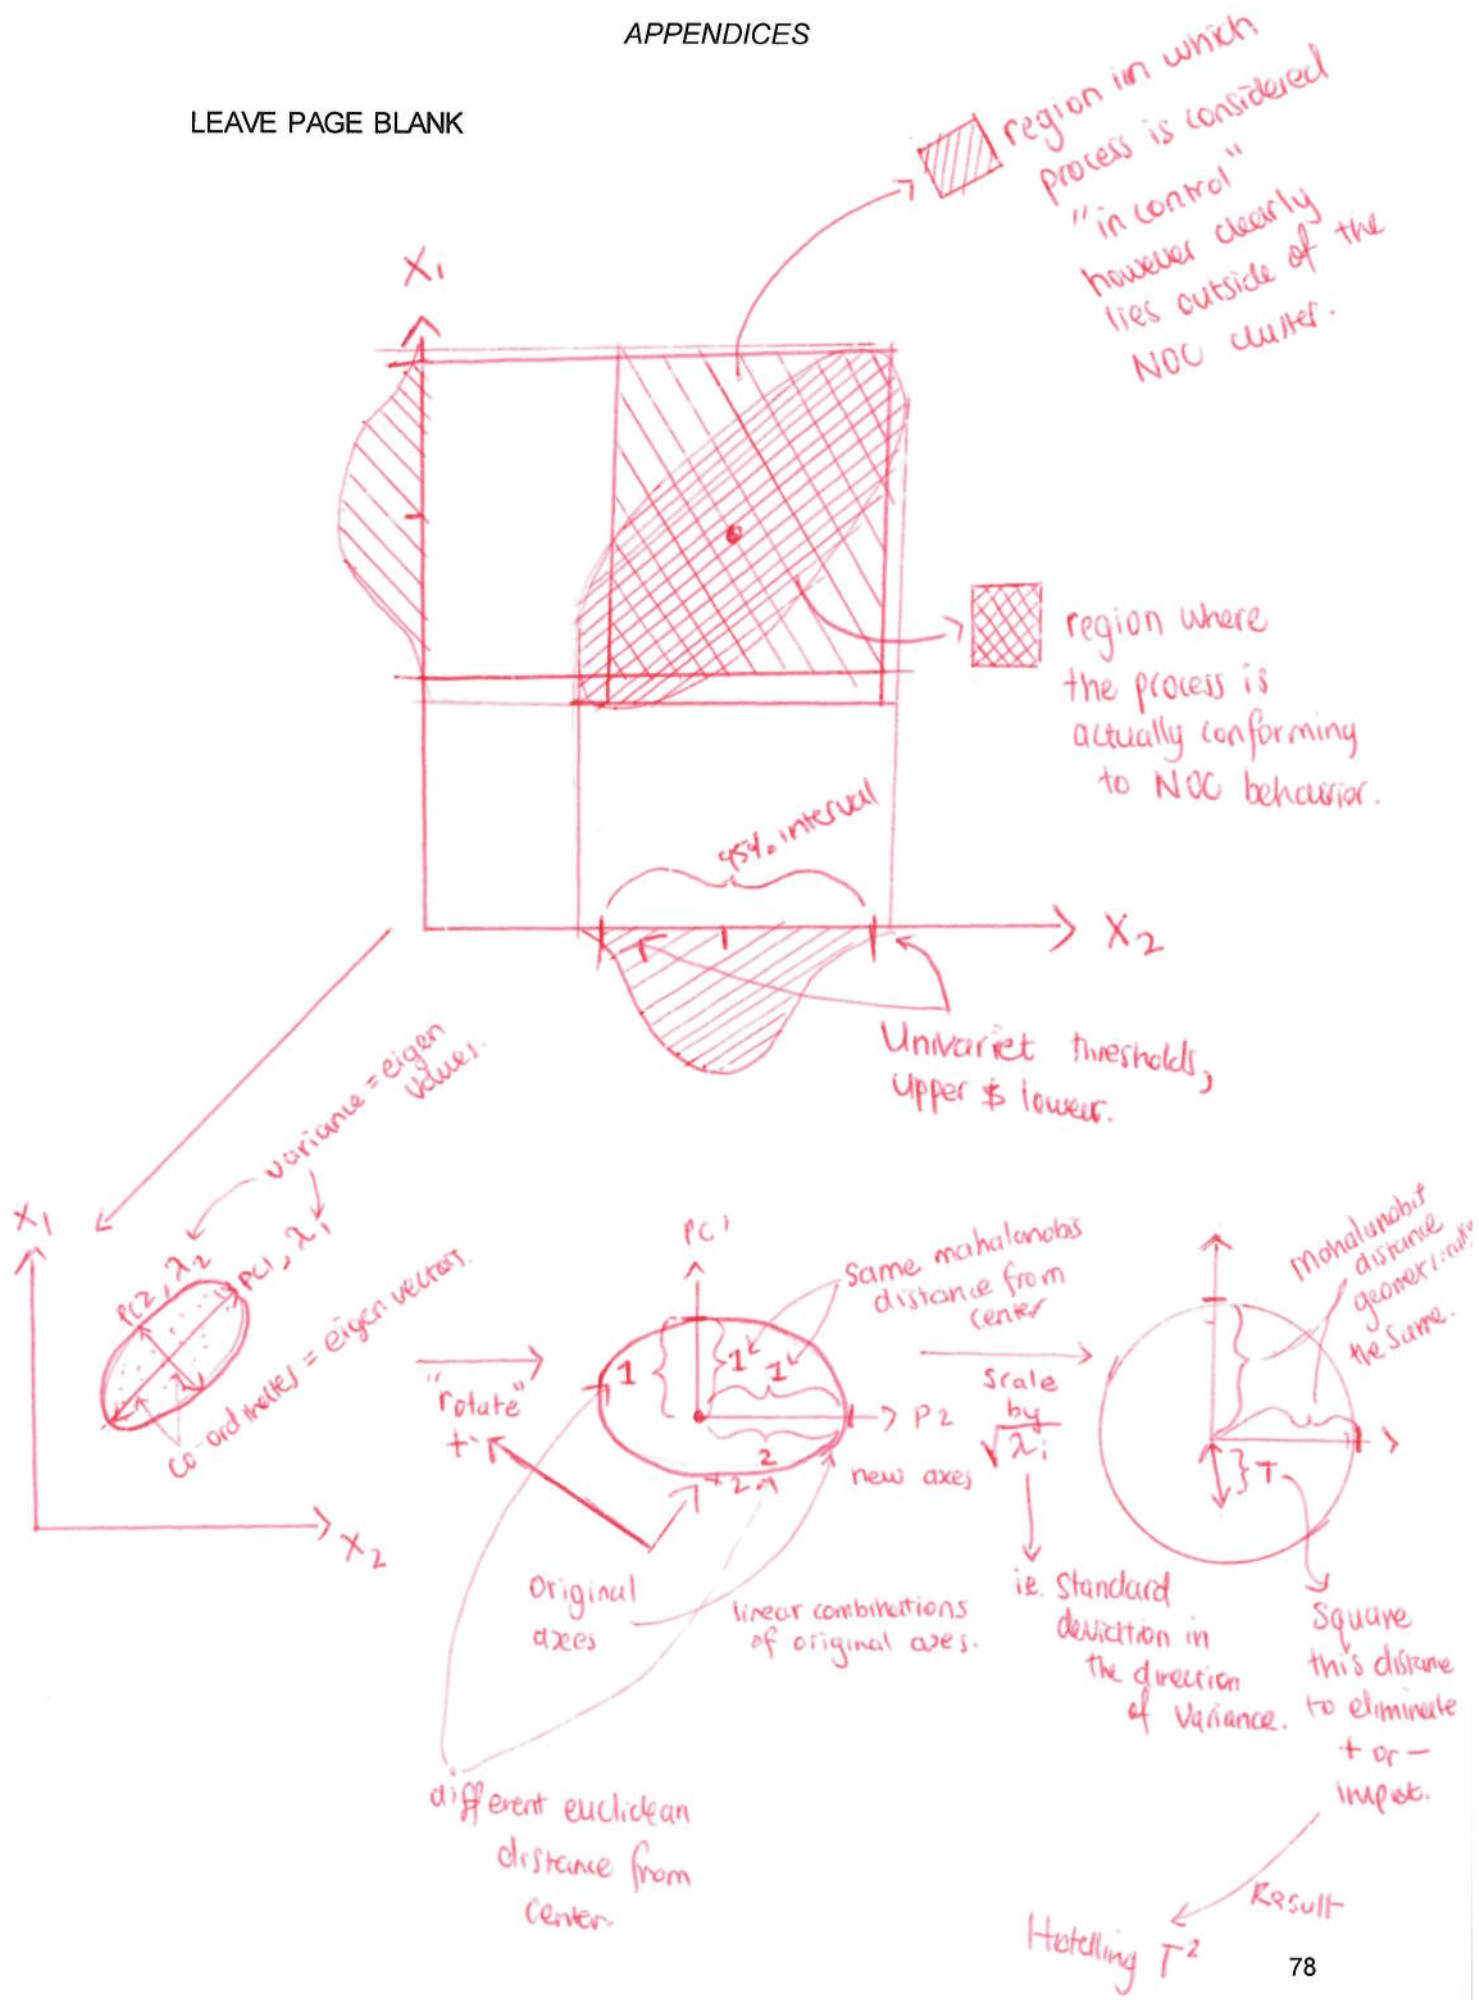 APPENDICES
LEAVE PAGE BLANK
region in which
process is considered
"in control"
however clearly
lies outside of the
NOC cluster.
X₁
region where
the process is
actually conforming
to NOC behaviour.
95% interval
X₂
Univariet thresholds,
upper & lower.
variance = eigen
values.
X₁
PC2, λ₂
PC1, λ₁
co-ordinates = eigen vectors.
X₂
"rotate"
PC1
Same mahalanobis
distance from
center
1
1
1
2
P2
new axes
Original
axes
linear combinations
of original axes.
different euclidean
distance from
center.
scale
by
√λᵢ
ie. Standard
deviation in
the direction
of variance.
mahalanobis
distance
the same.
T
Square
this distance
to eliminate
+ or -
impact.
Result
Hotelling T²
78